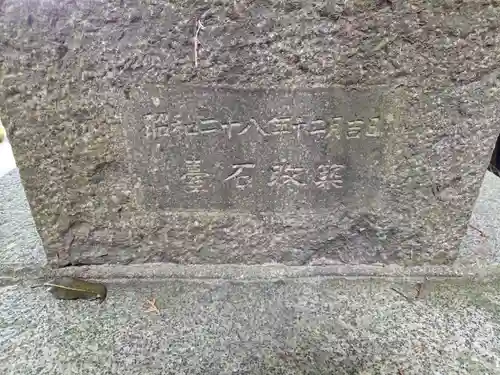 昭和二十八年十二月吉日
臺石改築